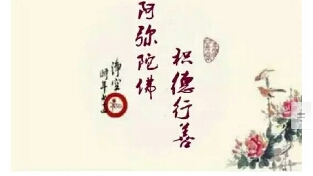 阿弥陀佛
积德行善
净空